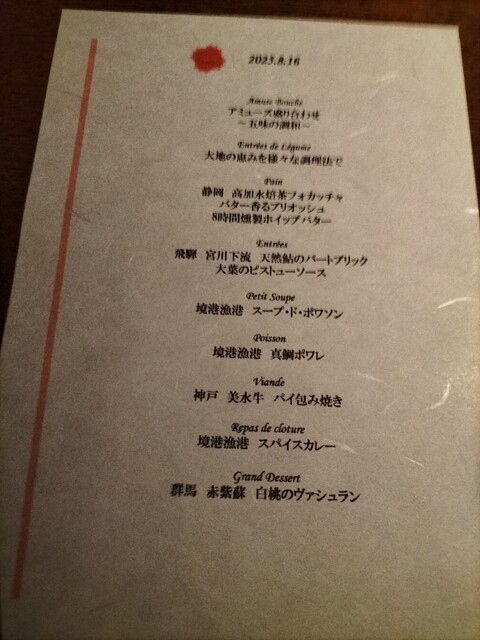 2023.8.16
Amuse Bouche
アミューズ盛り合わせ
~五味の調和~
Entrées de Légume
大地の恵みを様々な調理法で
Pain
静岡 高加水焙茶フォカッチャ
バター香るブリオッシュ
8時間燻製ホイップバター
Entrées
飛騨 宮川下流 天然鮎のパートブリック
大葉のピストューソース
Petit Soupe
境港漁港 スープ・ド・ポワソン
Poisson
境港漁港 真鯛ポワレ
Viande
神戸 美水牛 パイ包み焼き
Repas de cloture
境港漁港 スパイスカレー
Grand Dessert
群馬 赤紫蘇 白桃のヴァシュラン